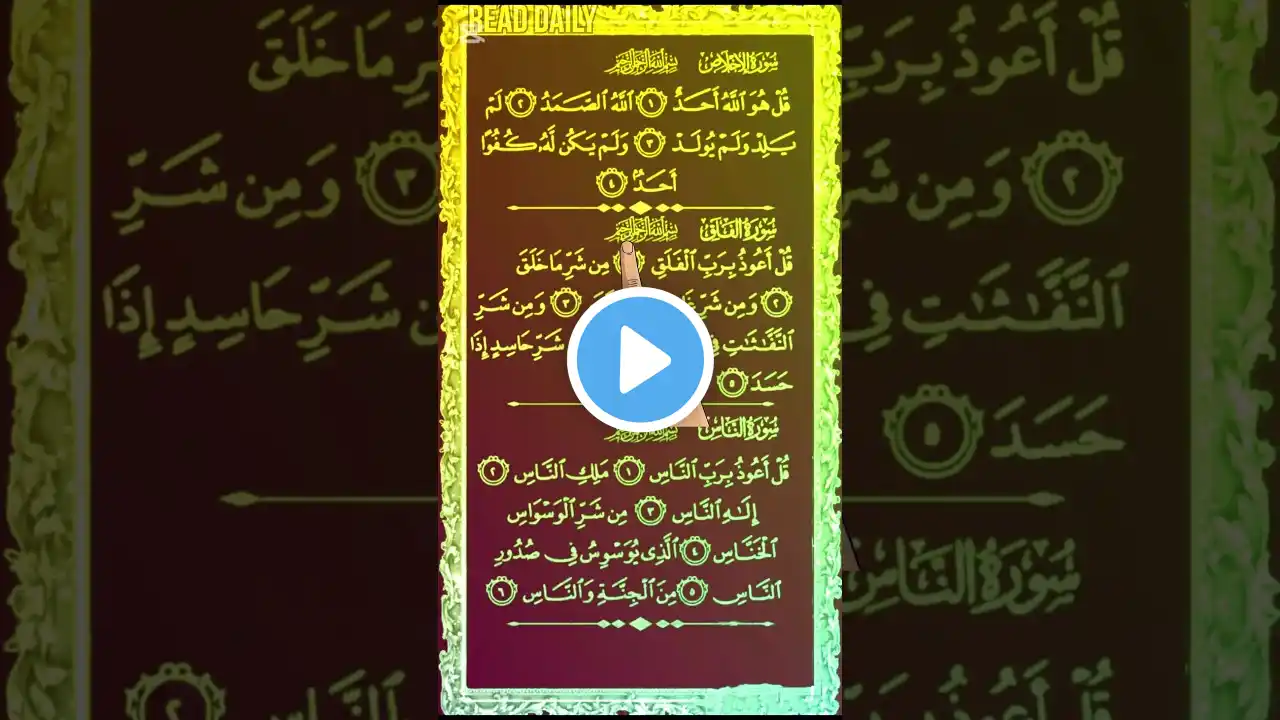 READ DAILY
سُورَةُ الإِخْلَاصِ بِسْمِ ٱللَّهِ ٱلرَّحْمَـٰنِ ٱلرَّحِيمِ
قُلْ هُوَ ٱللَّهُ أَحَدٌ ١ ٱللَّهُ ٱلصَّمَدُ ٢ لَمْ
يَلِدْ وَلَمْ يُولَدْ ٣ وَلَمْ يَكُن لَّهُۥ كُفُوًا
أَحَدٌۢ ٤
سُورَةُ الفَلَقِ بِسْمِ ٱللَّهِ ٱلرَّحْمَـٰنِ ٱلرَّحِيمِ
قُلْ أَعُوذُ بِرَبِّ ٱلْفَلَقِ مِن شَرِّ مَا خَلَقَ
٢ وَمِن شَرِّ ٣ وَمِن شَرِّ
ٱلنَّفَّـٰثَـٰتِ فِى شَرِّ حَاسِدٍ إِذَا
حَسَدَ ٥
سُورَةُ النَّاسِ بِسْمِ ٱللَّهِ ٱلرَّحْمَـٰنِ ٱلرَّحِيمِ
قُلْ أَعُوذُ بِرَبِّ ٱلنَّاسِ ١ مَلِكِ ٱلنَّاسِ ٢
إِلَـٰهِ ٱلنَّاسِ ٣ مِن شَرِّ ٱلْوَسْوَاسِ
ٱلْخَنَّاسِ ٤ ٱلَّذِى يُوَسْوِسُ فِى صُدُورِ
ٱلنَّاسِ ٥ مِنَ ٱلْجِنَّةِ وَٱلنَّاسِ ٦